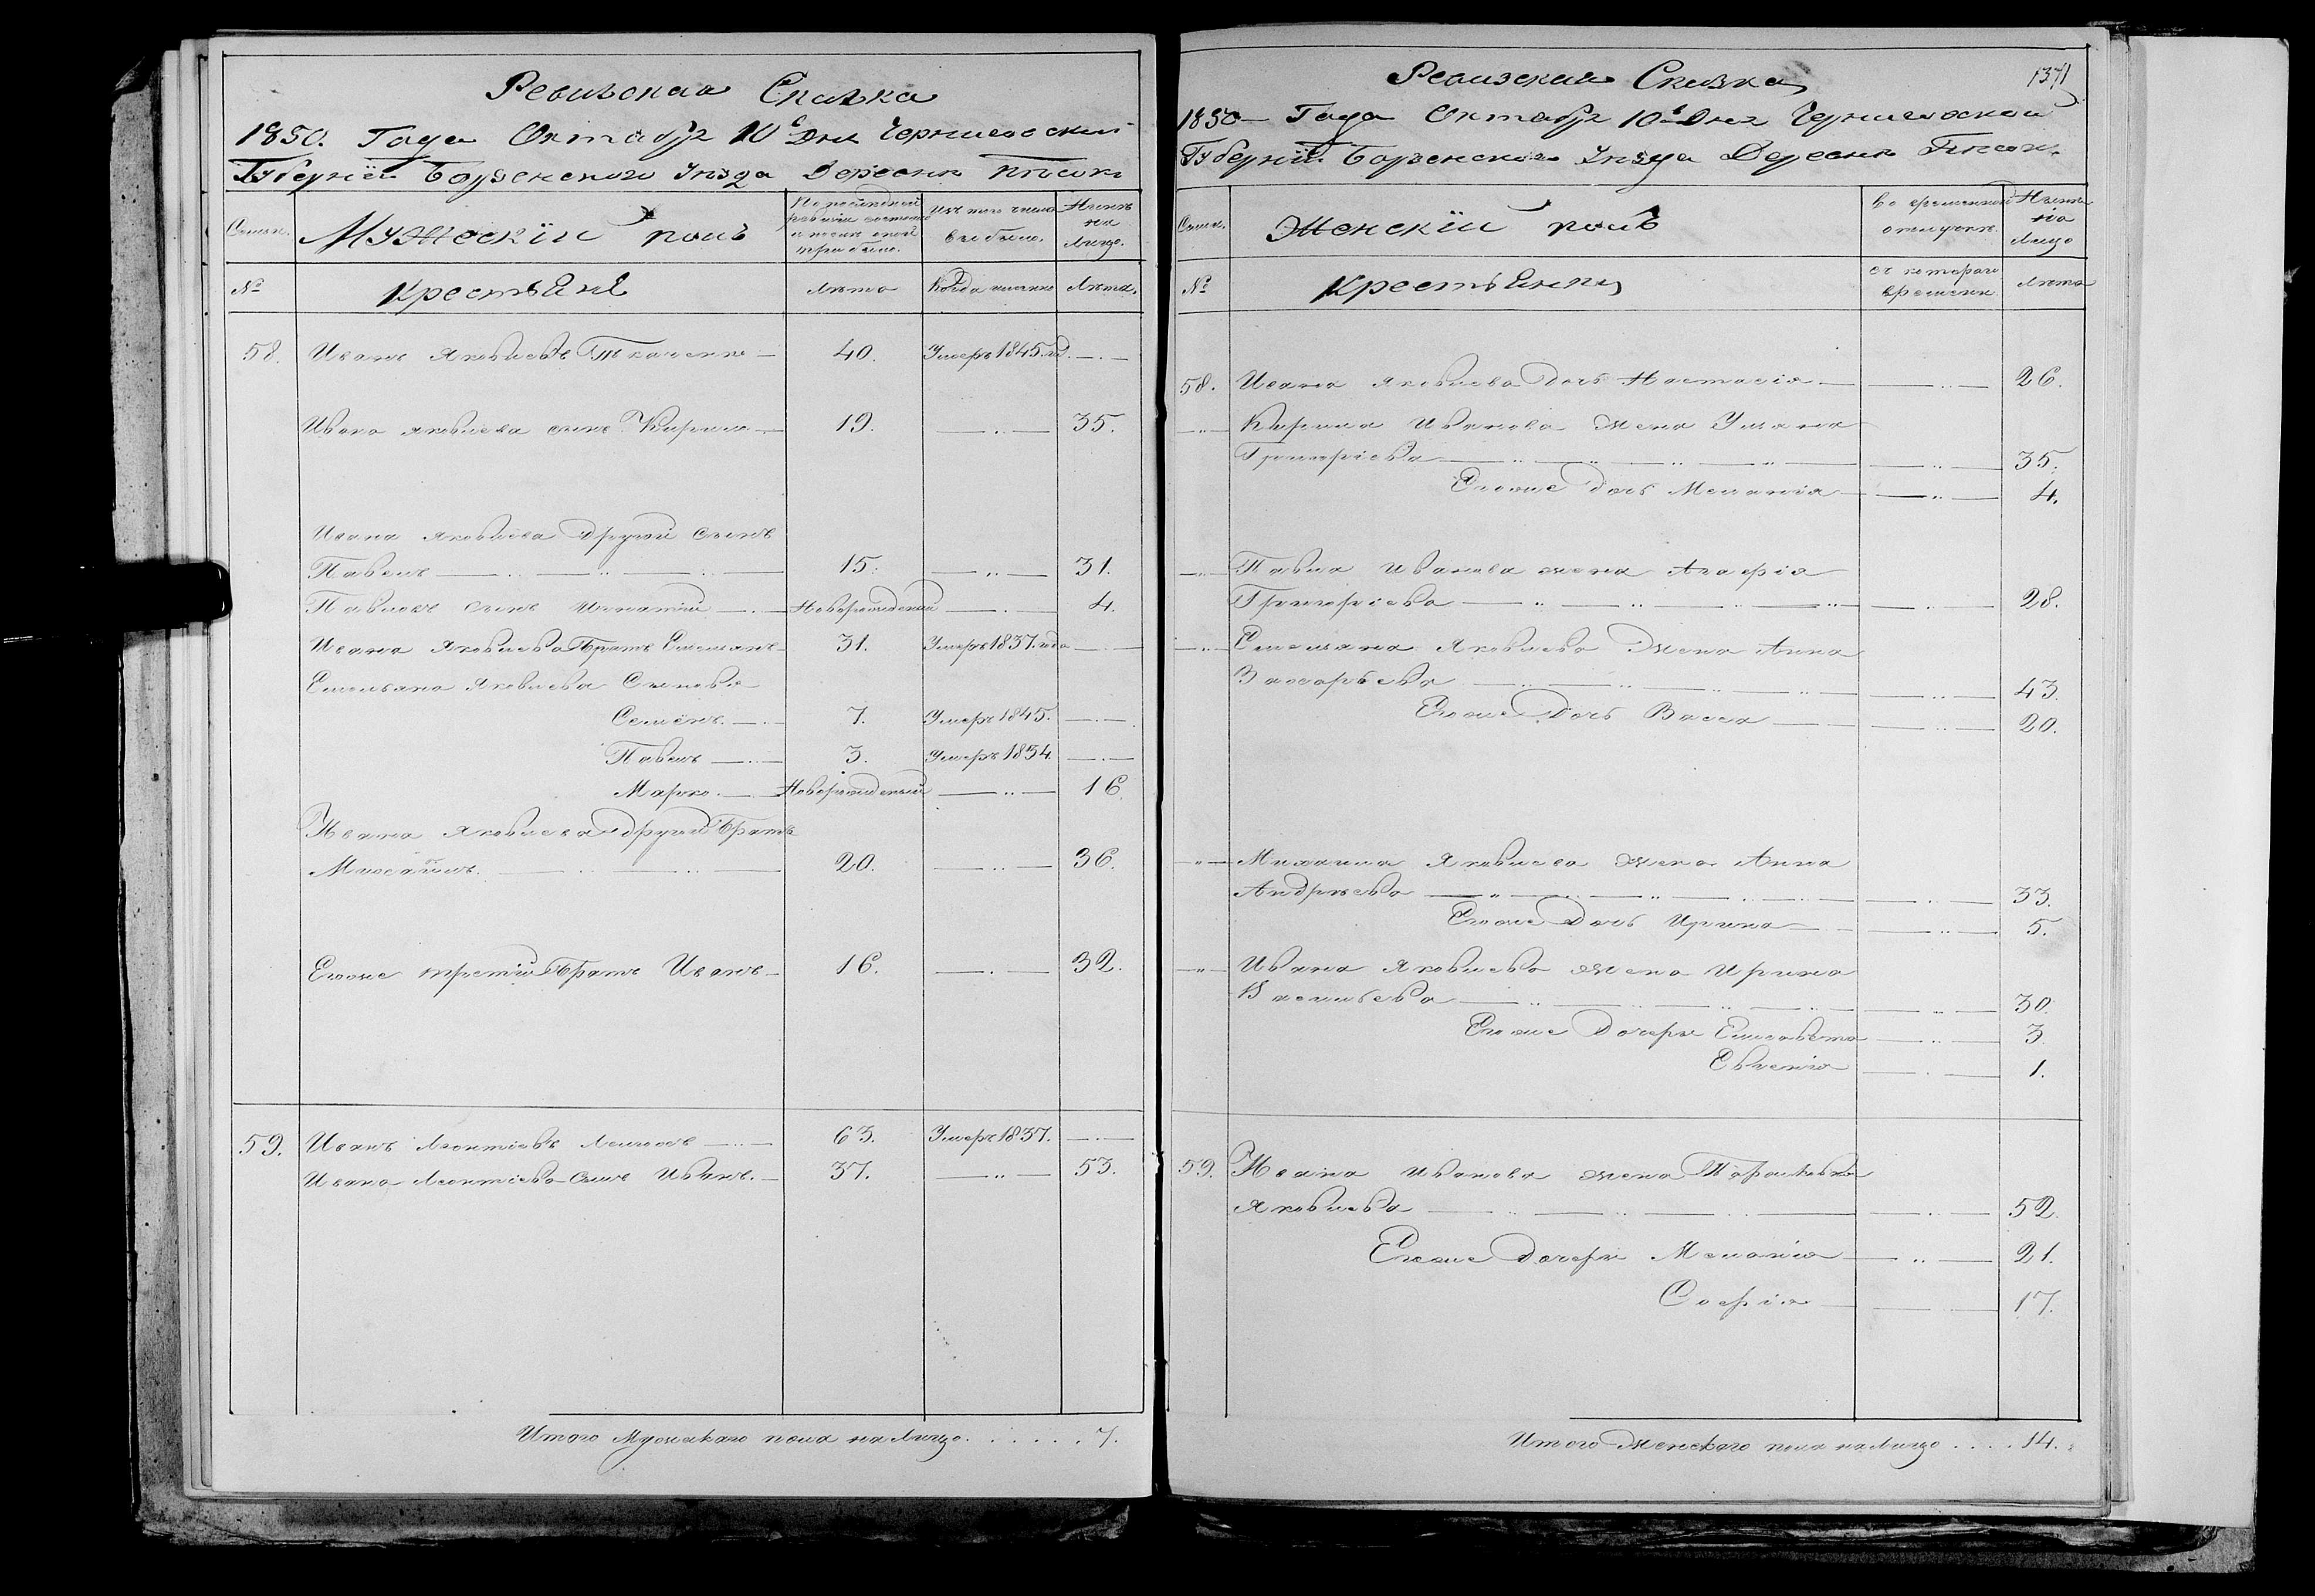 Ревизская Сказка
1850. Года Октября 10е Дня Черниговской
Губернiи Борзенского Уезда Деревни Пески
Семьи.
Мужескiй полъ
По последней ревизiи состояло и после оной прибыло.
Изъ того числа выбыло.
Ныне на лицо.
№
Крестьяне
Лета
Когда именно
Лета.
58. Иванъ Яковлевъ Ткаченко — 40. Умеръ 1845. год. —
Ивана Яковлева сынъ Кирило — 19. — 35.
Ивана Яковлева Другой сынъ
Павелъ — 15. — 31.
Павловъ сынъ Игнатiй — Новорожденый — 4.
Ивана Яковлева Братъ Емельянъ 31. Умеръ 1837. года —
Емельяна Яковлева Сыновья
Семёнъ. — 7. Умеръ 1845. —
Павелъ — 3. Умеръ 1854. —
Марко. — Новорожденый — 16
Ивана Яковлева другой Братъ
Михайлъ. — 20. — 36.
Егоже третiй Братъ Иванъ — 16. — 32.
59. Иванъ Леонтiевъ — 63. Умеръ 1837. —
Ивана Леонтiева Сынъ Иванъ. — 37. — 53.
Итого Мужескаго пола на Лицо. . . . . . 7.
Ревизская Сказка
1371
1850 — Года Октября 10е Дня Черниговской
Губернiи Борзенского Уезда Деревни Пески.
Семьи.
Женскiй полъ
Во временной отлучке
Ныне на Лицо
№
Крестьянки
Съ котораго времени
Лета
58. Ивана Яковлева Дочь Настасiя — 26.
Кирила Иванова Жена Уляна
Григорiева — 35.
Егоже дочь Меланiя — 4.
Павла Иванова жена Агафiя
Григорiева — 28.
Емельяна Яковлева Жена Анна
Захарьева — 43.
Егоже Дочь Васса — 20.
Михаила Яковлева жена Анна
Андреева — 33.
Егоже Дочь Ирина — 5.
Ивана Яковлева жена Ирина
Васильева — 30.
Егоже Дочери Елисавета — 3
Евгенiя — 1.
59. Ивана Иванова жена Парасковiя
Яковлева — 52.
Егоже Дочери Меланiя — 21.
Софiя — 17.
Итого Женскаго пола на Лицо . . . . 14.